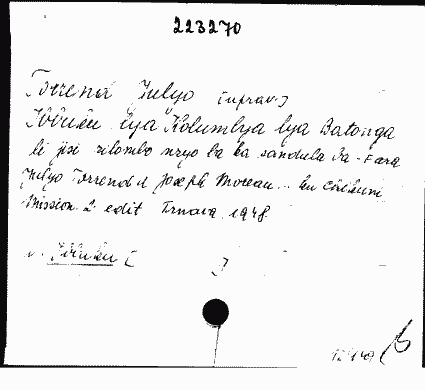 223270
Torrend Julyo [uprav.]
Ibbuku lya Kolumbya lya Batonga
li jisi zilombo nzyo ba ka sandula ba-Fara
Julyo Torrend u Joseph Moreau... ku Cikuni
Mission. 2 edit Trnava 1948
v. Ibbuku [ ]